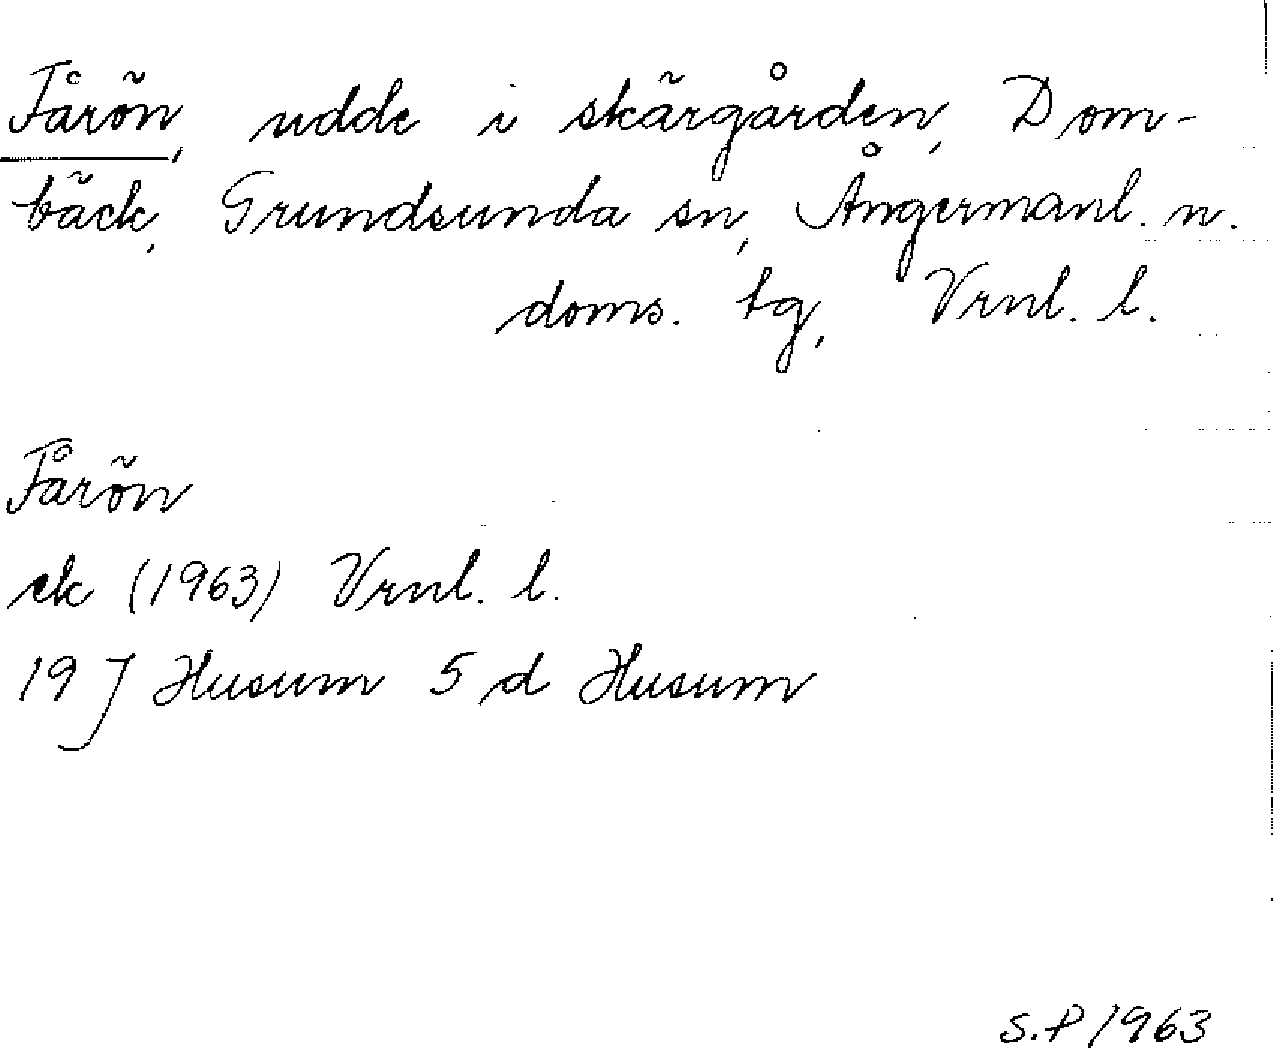 Fårön, udde i skärgården, Dom-
bäck, Grundsunda sn, Ångermanl. n.
doms. tg, Vrnl. l.
Fårön
ek (1963) Vrnl. l.
19 J Husum 5 d Husum
S.P 1963